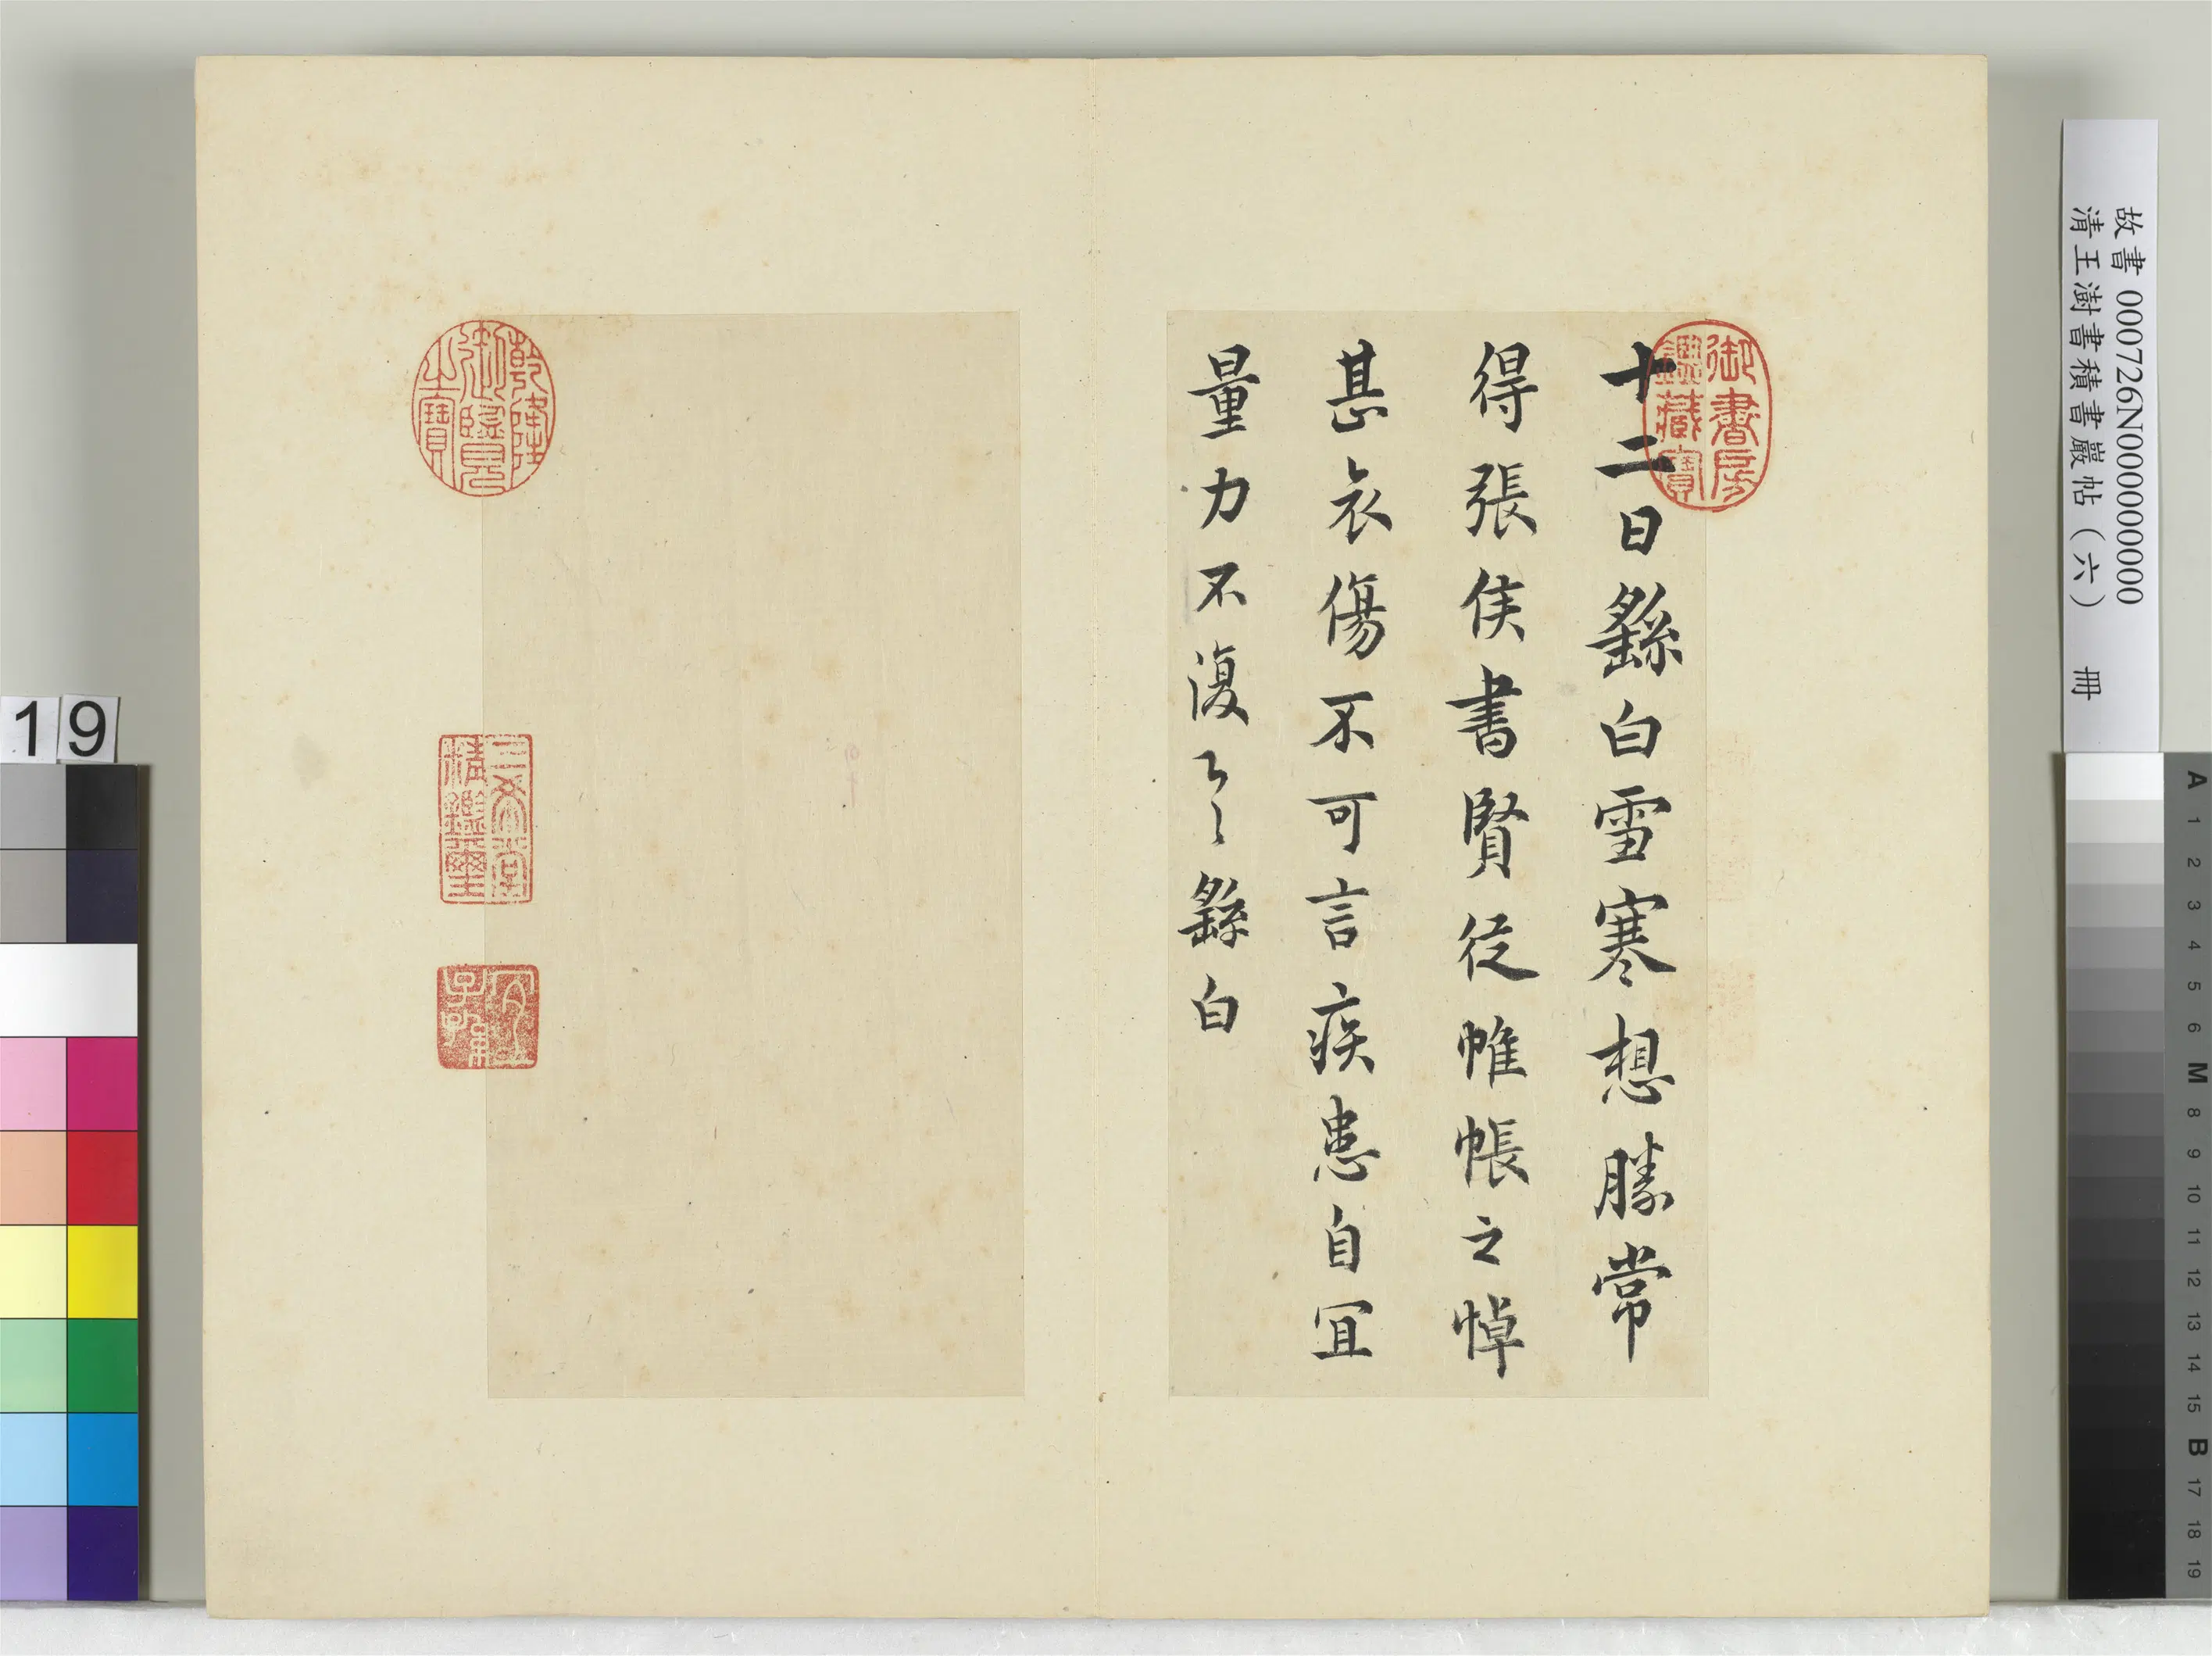 十二日繇白雪寒想勝常
得張侯書賢從帷帳之悼
甚哀傷不可言疾患自宜
量力不復々繇白
御書房鑒藏寶
乾隆御覽之寶
三希堂精鑑璽
宜子孫
故書 000726N000000000
清王澍書積書巖帖(六) 冊
19
A 1 2 3 4 5 6 M 8 9 10 11 12 13 14 15 B 17 18 19